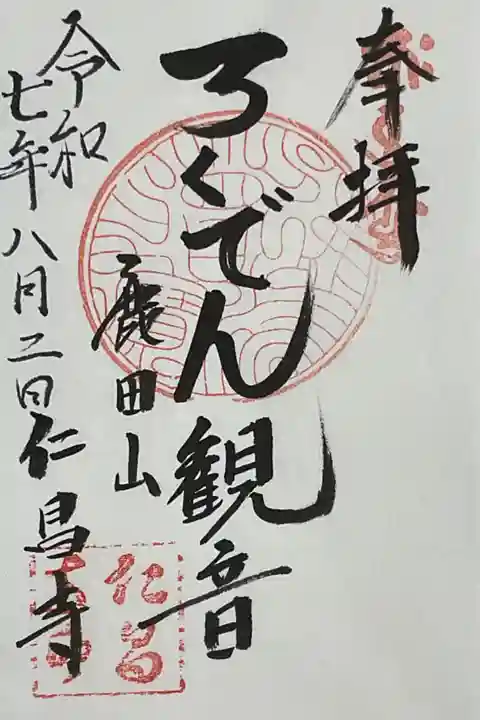 奉拝
ろくでん観音
鹿田山
仁昌寺
令和七年八月二日
仁昌